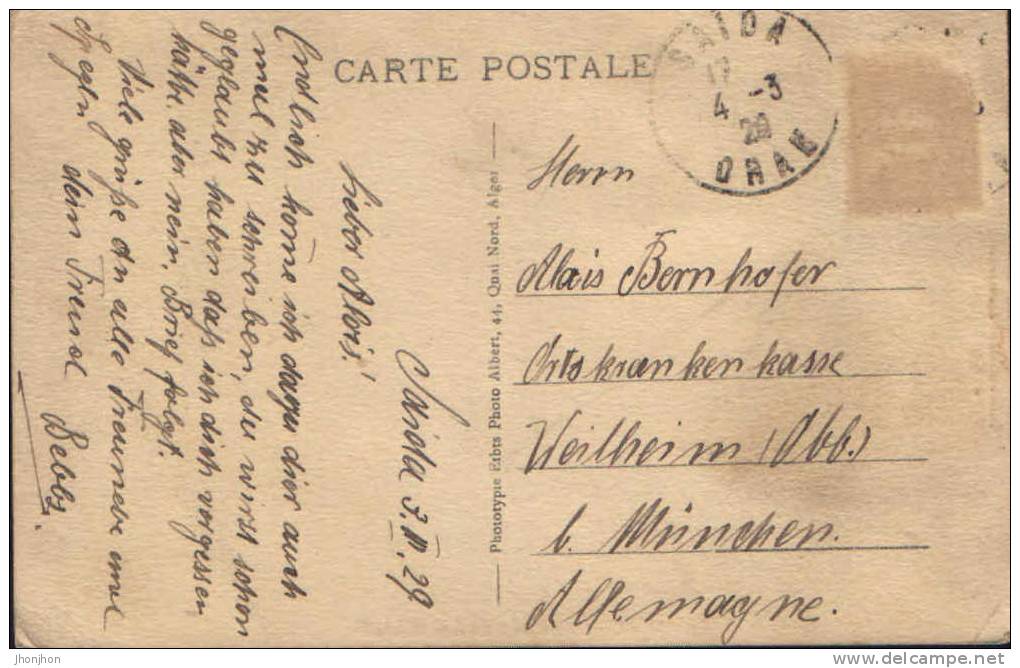 CARTE POSTALE
SAIDA
4 -3
29
ORAN
Saida 3.III.29
Lieber Alois!
Endlich kom̄e ich dazu dier auch
mal zu schreiben, du wirst schon
geglaubt haben daß ich dich vergessen
hätte. aber nein. Brief folgt.
Viele grüße an alle Freunde und
Spezln dein Freund
Bebbs.
Phototypie Etbts Photo Albert, 44, Quai Nord, Alger
Herrn
Alois Bernhofer
Ortskrankenkasse
Weilheim (Obb.)
b. München.
Allemagne.
jhonjhon
delcampe.net